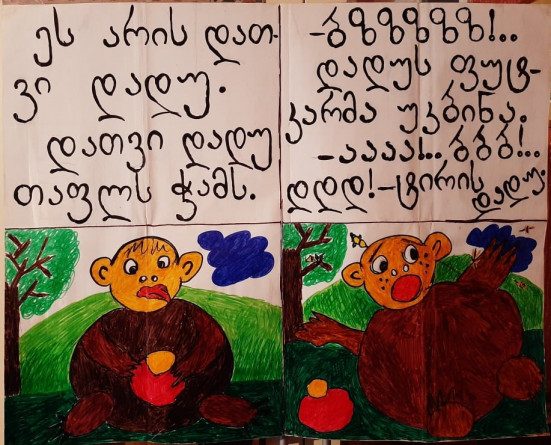 ეს არის დათ-
ვი დადუ.
დათვი დადუ
თაფლს ჭამს.
-ბზზზზზ!..
დადუს ფუტ-
კარმა უკბინა.
-აააა!.. ბბბ!..
დდდ!-ტირის
დადუ.